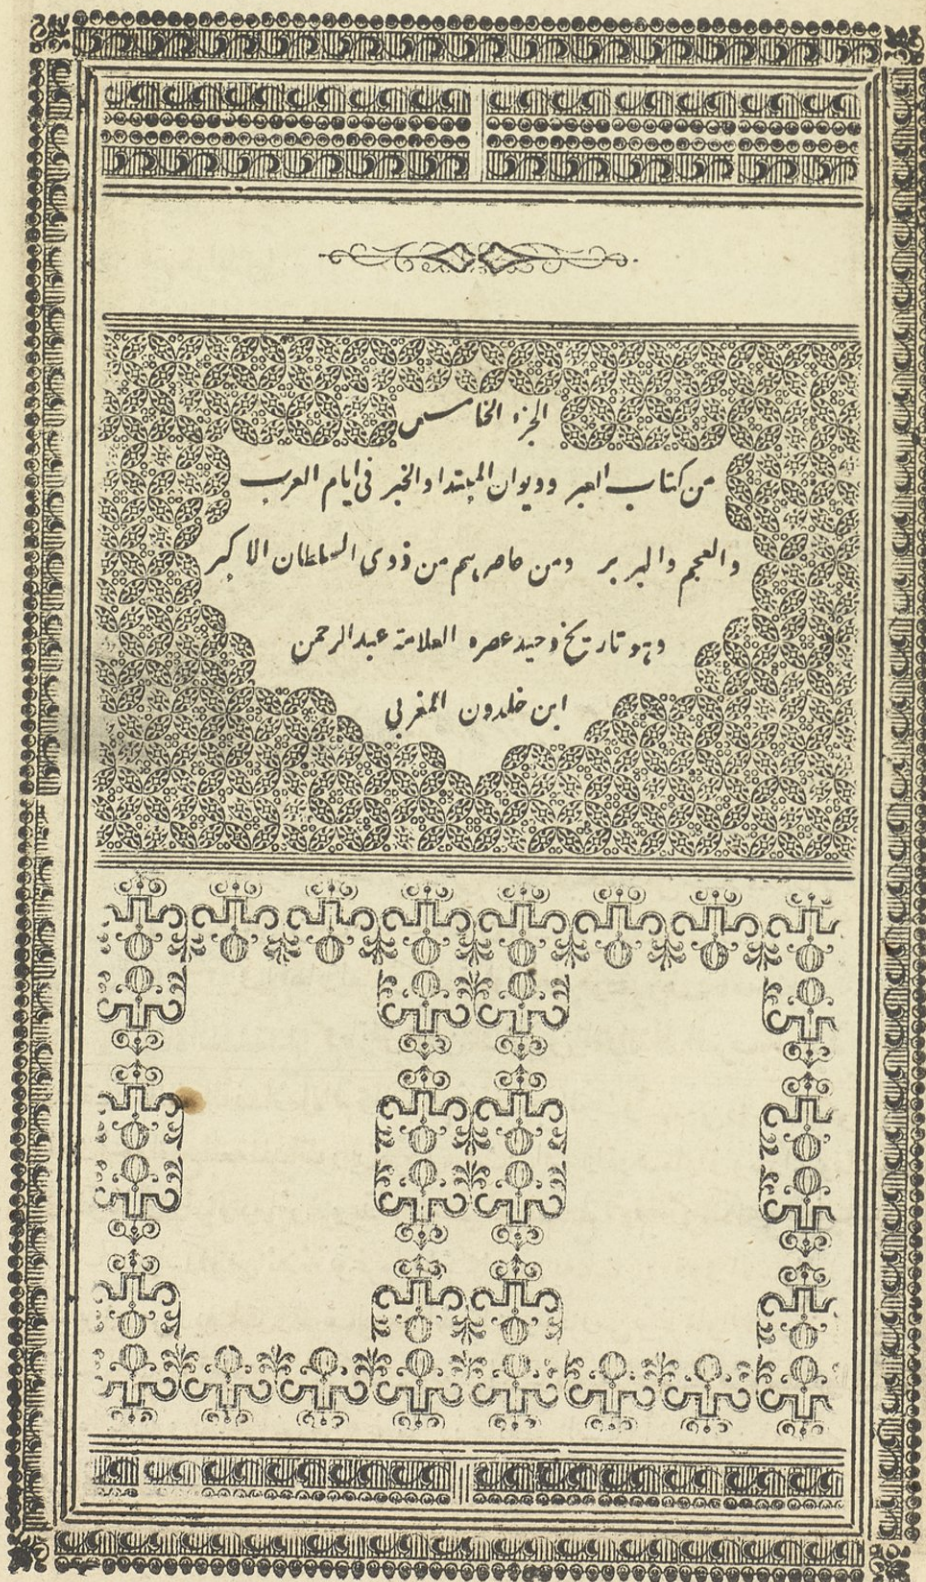 الجزء الخامس
من كتاب العبر وديوان المبتدا والخبر فى ايام العرب
والعجم والبربر ومن عاصرهم من ذوى السلطان الاكبر
وهو تاريخ وحيد عصره العلامة عبد الرحمن
ابن خلدون المغربي